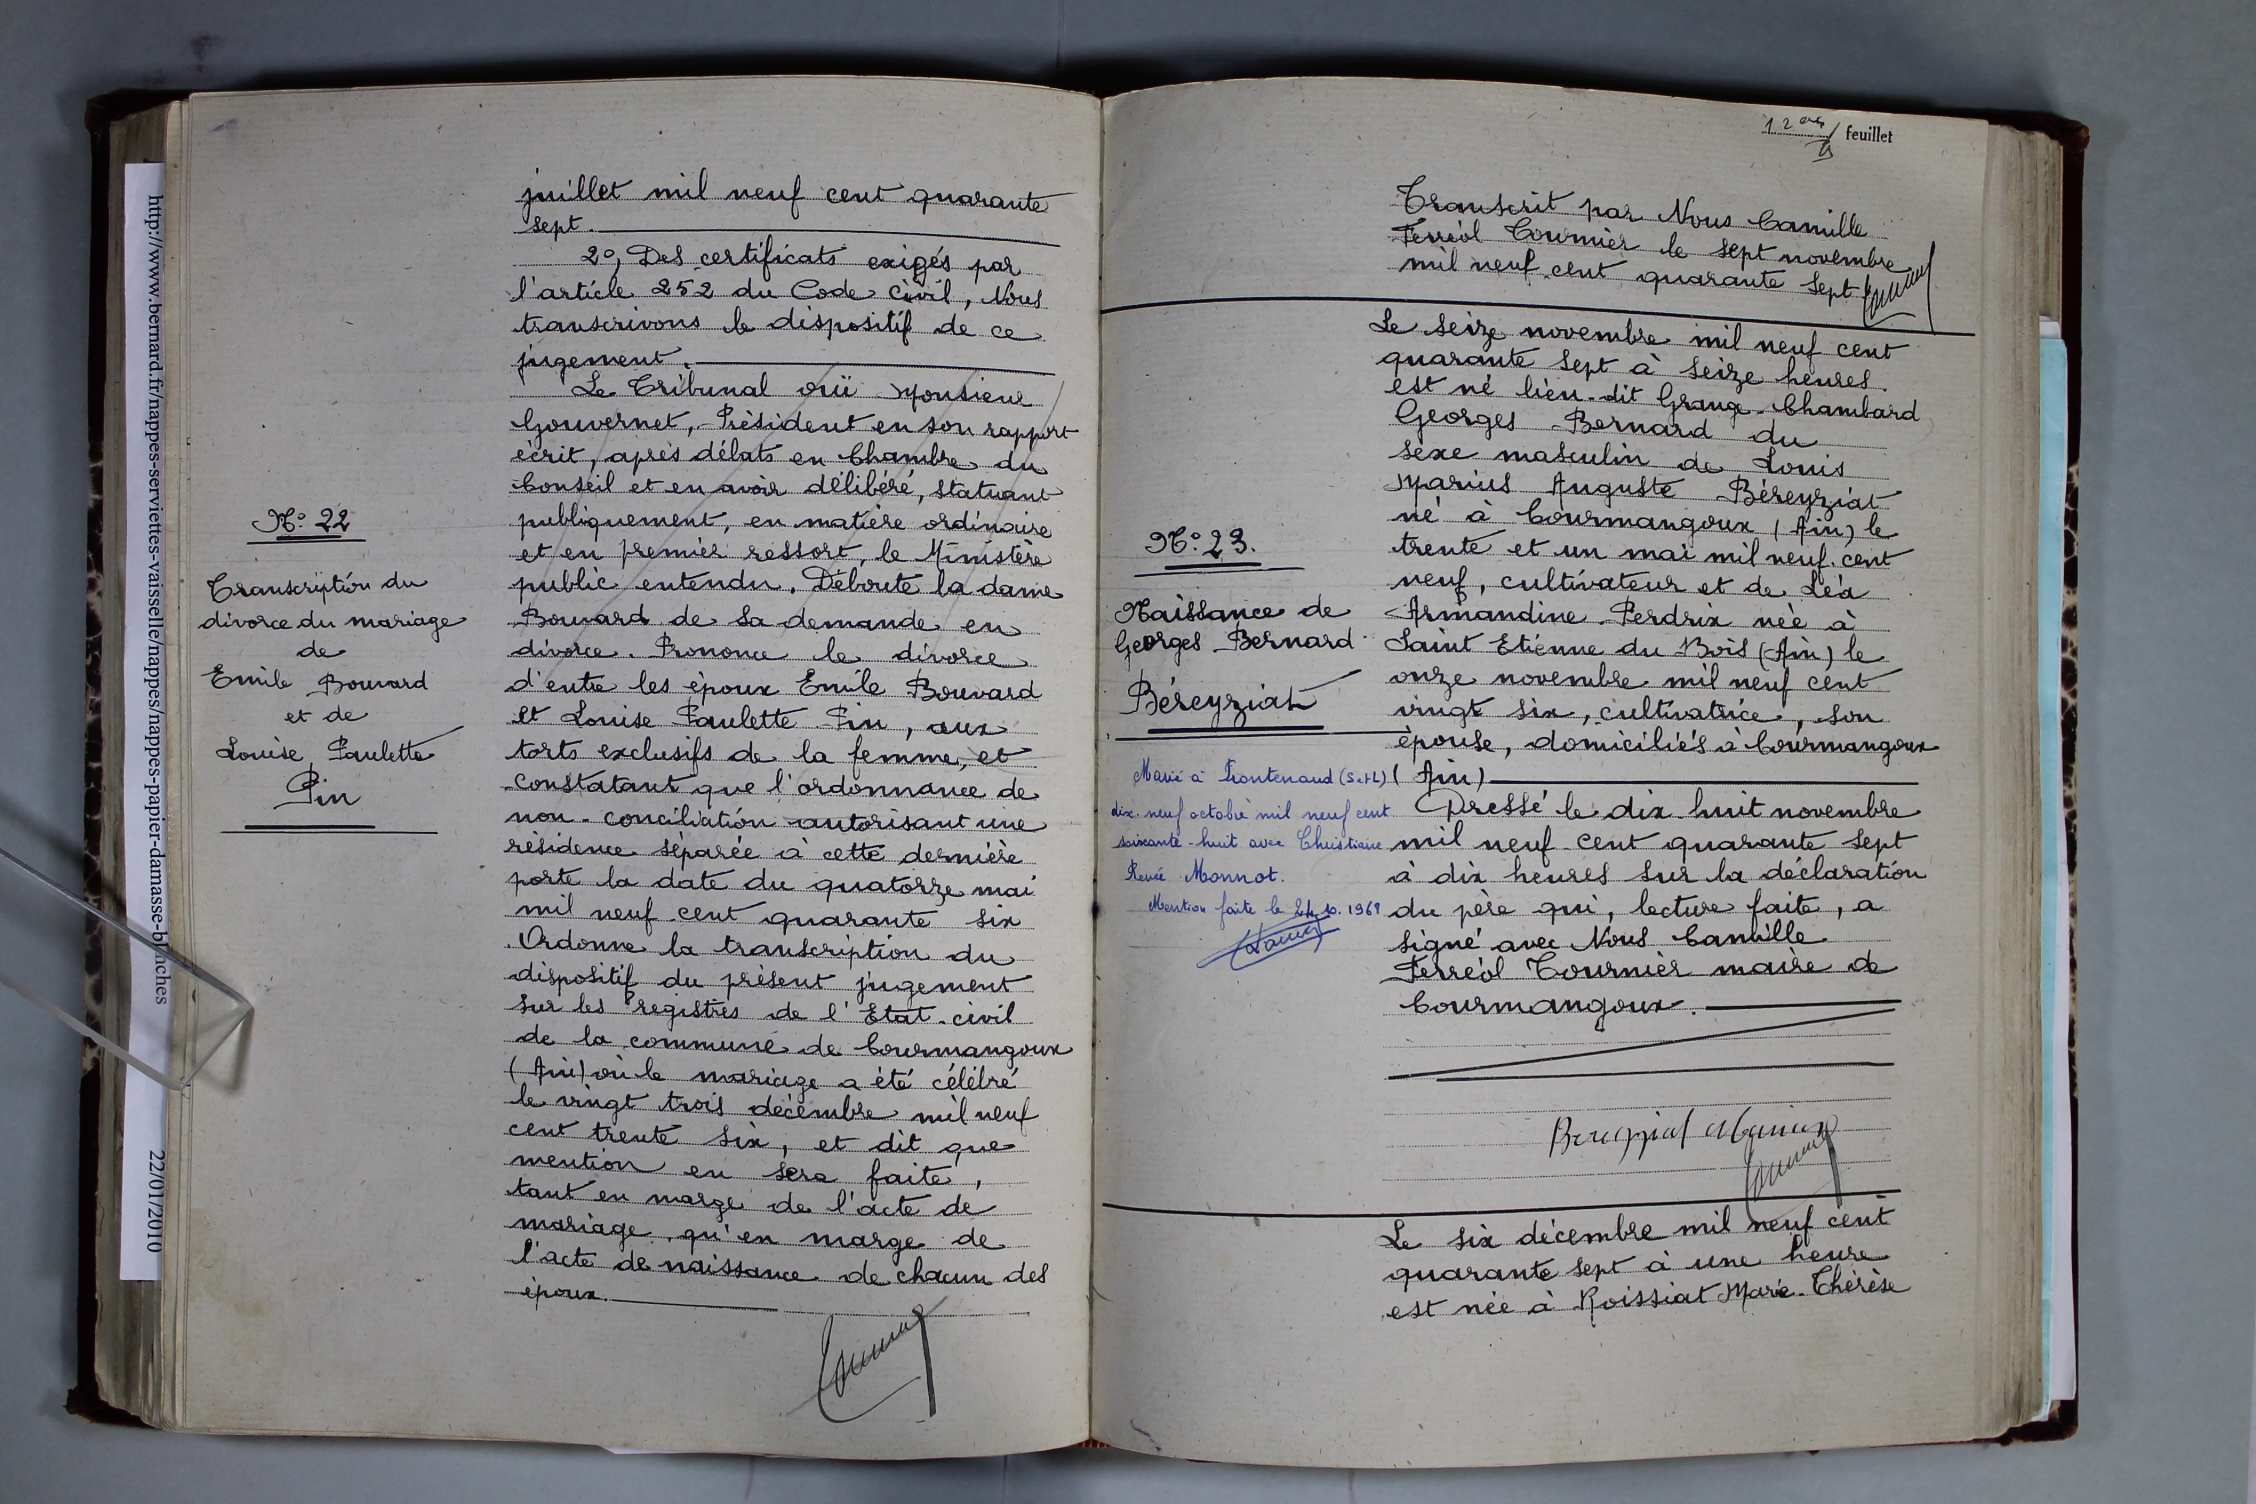 http://www.bernard.fr/nappes-serviettes-vaisselle/nappes/nappes-papier-damasse-blanches
22/01/2010
N° 22
Transcription du
divorce du mariage
de
Emile Bouvard
et de
Louise Paulette
Pin
juillet mil neuf cent quarante
sept.
2°, Des certificats exigés par
l'article 252 du Code civil, Nous
transcrivons le dispositif de ce
jugement.
Le Tribunal ouï Monsieur
Gouvernet, Président en son rapport
écrit, après débats en Chambre du
Conseil et en avoir délibéré, statuant
publiquement, en matière ordinaire
et en premier ressort, le Ministère
public entendu. Déboute la dame
Bouvard de sa demande en
divorce. Prononce le divorce
d'entre les époux Emile Bouvard
et Louise Paulette Pin, aux
torts exclusifs de la femme, et
constatant que l'ordonnance de
non-conciliation autorisant une
résidence séparée à cette dernière
porte la date du quatorze mai
mil neuf cent quarante six
Ordonne la transcription du
dispositif du présent jugement
sur les registres de l'Etat-civil
de la commune de Courmangoux
(Ain) où le mariage a été célébré
le vingt trois décembre mil neuf
cent trente six, et dit que
mention en sera faite,
tant en marge de l'acte de
mariage qu'en marge de
l'acte de naissance de chacun des
époux.
feuillet
Transcrit par Nous Camille
Ferréol Tournier le sept novembre
mil neuf cent quarante sept
N° 23.
Naissance de
Georges Bernard
Béreyziat
Marié à Frontenaud (S.et L)
dix-neuf octobre mil neuf cent
soixante-huit avec Christiane
Renée Monnot.
Mention faite le 24.10.1968
Le seize novembre mil neuf cent
quarante sept à seize heures
est né lieu-dit Grange-Chambard
Georges Bernard du
sexe masculin de Louis
Marius Auguste Béreyziat
né à Courmangoux (Ain) le
trente et un mai mil neuf cent
neuf, cultivateur et de Léa
Armandine Perdrix née à
Saint Etienne du Bois (Ain) le
onze novembre mil neuf cent
vingt six, cultivatrice, son
épouse, domiciliés à Courmangoux
(Ain)
Dressé le dix huit novembre
mil neuf cent quarante sept
à dix heures sur la déclaration
du père qui, lecture faite, a
signé avec Nous Camille
Ferréol Tournier maire de
Courmangoux.
Bereyziat Marius
Le six décembre mil neuf cent
quarante sept à une heure
est née à Roissiat Marie-Thérèse